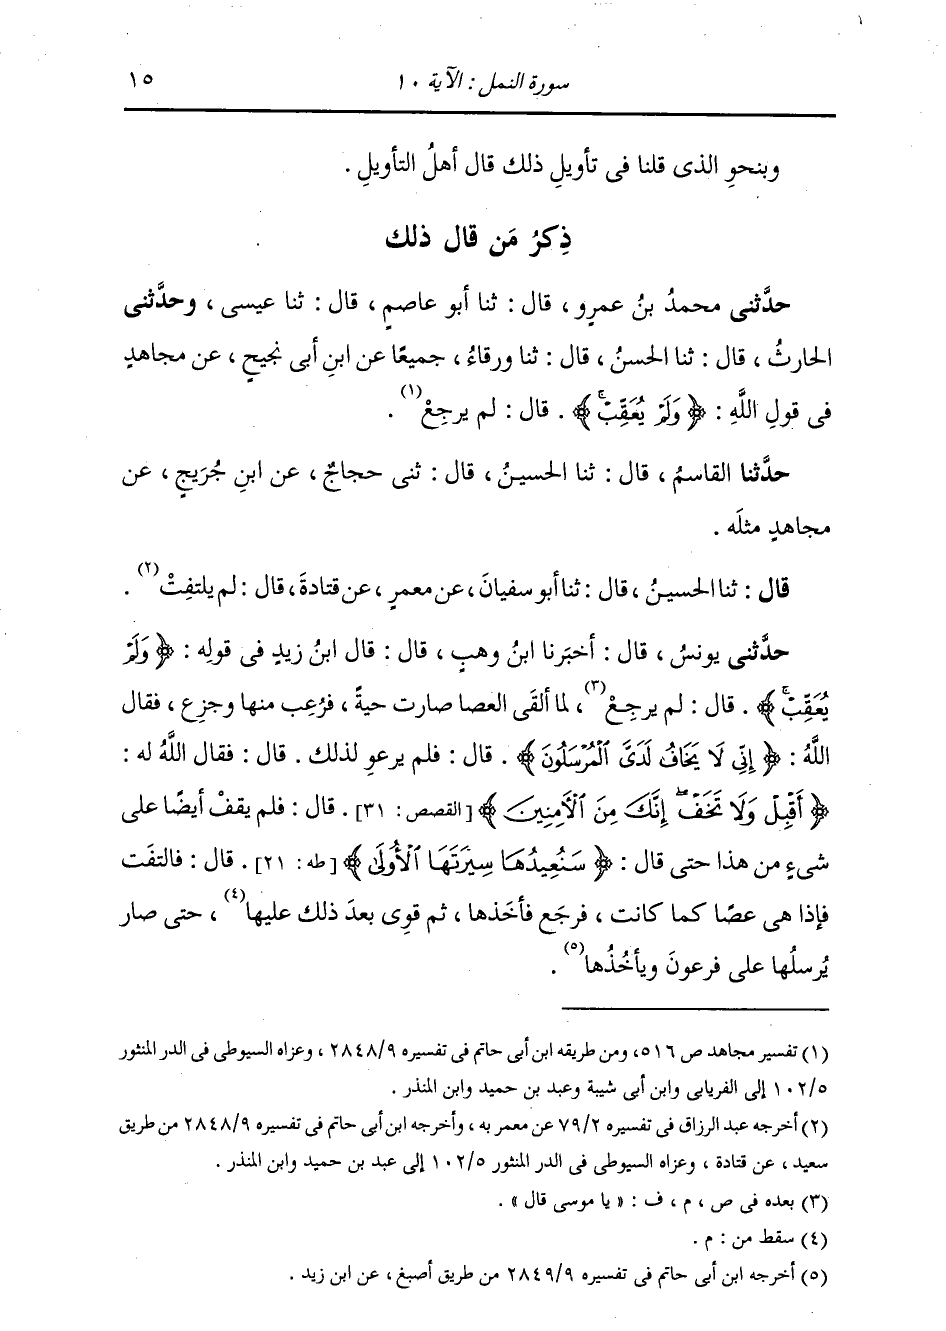 سورة النمل : الآية ١٠
١٥
وبنحوِ الذى قلنا فى تأويلِ ذلك قال أهلُ التأويلِ .
ذِكرُ مَن قال ذلك
حدَّثنى محمدُ بنُ عمرٍو ، قال : ثنا أبو عاصمٍ ، قال : ثنا عيسى ، وحدَّثنى
الحارثُ ، قال : ثنا الحسنُ ، قال : ثنا ورقاءُ ، جميعًا عن ابنِ أبى نجيحٍ ، عن مجاهدٍ
فى قولِ اللَّهِ : ﴿ وَلَمْ يُعَقِّبْۚ ﴾ . قال : لم يرجِعْ(١) .
حدَّثنا القاسمُ ، قال : ثنا الحسينُ ، قال : ثنى حجاجٌ ، عن ابنِ جُرَيجٍ ، عن
مجاهدٍ مثلَه .
قال : ثنا الحسينُ ، قال : ثنا أبو سفيانَ ، عن معمرٍ ، عن قتادةَ ، قال : لم يلتفِتْ(٢) .
حدَّثنى يونسُ ، قال : أخبَرنا ابنُ وهبٍ ، قال : قال ابنُ زيدٍ فى قولِه : ﴿ وَلَمْ
يُعَقِّبْۚ ﴾ . قال : لم يرجِعْ(٣) ، لما ألقَى العصا صارت حيةً ، فرُعِب منها وجزِع ، فقال
اللَّهُ : ﴿ إِنِّى لَا يَخَافُ لَدَىَّ ٱلْمُرْسَلُونَ ﴾ . قال : فلم يرعوِ لذلك . قال : فقال اللَّهُ له :
﴿ أَقْبِلْ وَلَا تَخَفْۖ إِنَّكَ مِنَ ٱلْأَمِنِينَ ﴾ [القصص : ٣١] . قال : فلم يقفْ أيضًا على
شىءٍ من هذا حتى قال : ﴿ سَنُعِيدُهَا سِيرَتَهَا ٱلْأُولَىٰ ﴾ [طه : ٢١] . قال : فالتفَت
فإذا هى عصًا كما كانت ، فرجَع فأخَذها ، ثم قوِى بعدَ ذلك عليها(٤) ، حتى صار
يُرسلُها على فرعونَ ويأخُذُها(٥) .
(١) تفسير مجاهد ص ٥١٦، ومن طريقه ابن أبى حاتم فى تفسيره ٢٨٤٨/٩ ، وعزاه السيوطى فى الدر المنثور
١٠٢/٥ إلى الفريابى وابن أبى شيبة وعبد بن حميد وابن المنذر .
(٢) أخرجه عبد الرزاق فى تفسيره ٧٩/٢ عن معمر به ، وأخرجه ابن أبى حاتم فى تفسيره ٢٨٤٨/٩ من طريق
سعيد ، عن قتادة ، وعزاه السيوطى فى الدر المنثور ١٠٢/٥ إلى عبد بن حميد وابن المنذر .
(٣) بعده فى ص ، م ، ف : « يا موسى قال » .
(٤) سقط من : م .
(٥) أخرجه ابن أبى حاتم فى تفسيره ٢٨٤٩/٩ من طريق أصبغ ، عن ابن زيد .